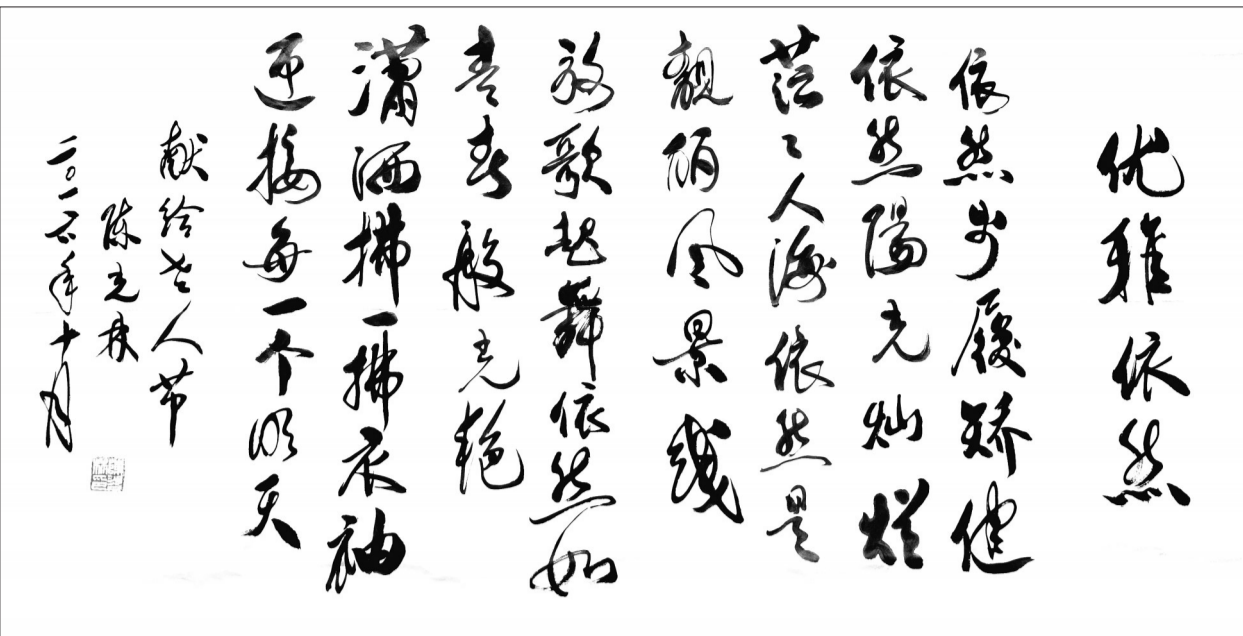 优雅依然
依然步履矫健
依然陽光灿烂
茫々人海依然是
靓丽风景线
放歌起舞依然如
青春般光艳
瀟洒拂一拂衣袖
迎接每一个明天
献给老人节
陈光林
二〇一六年十月